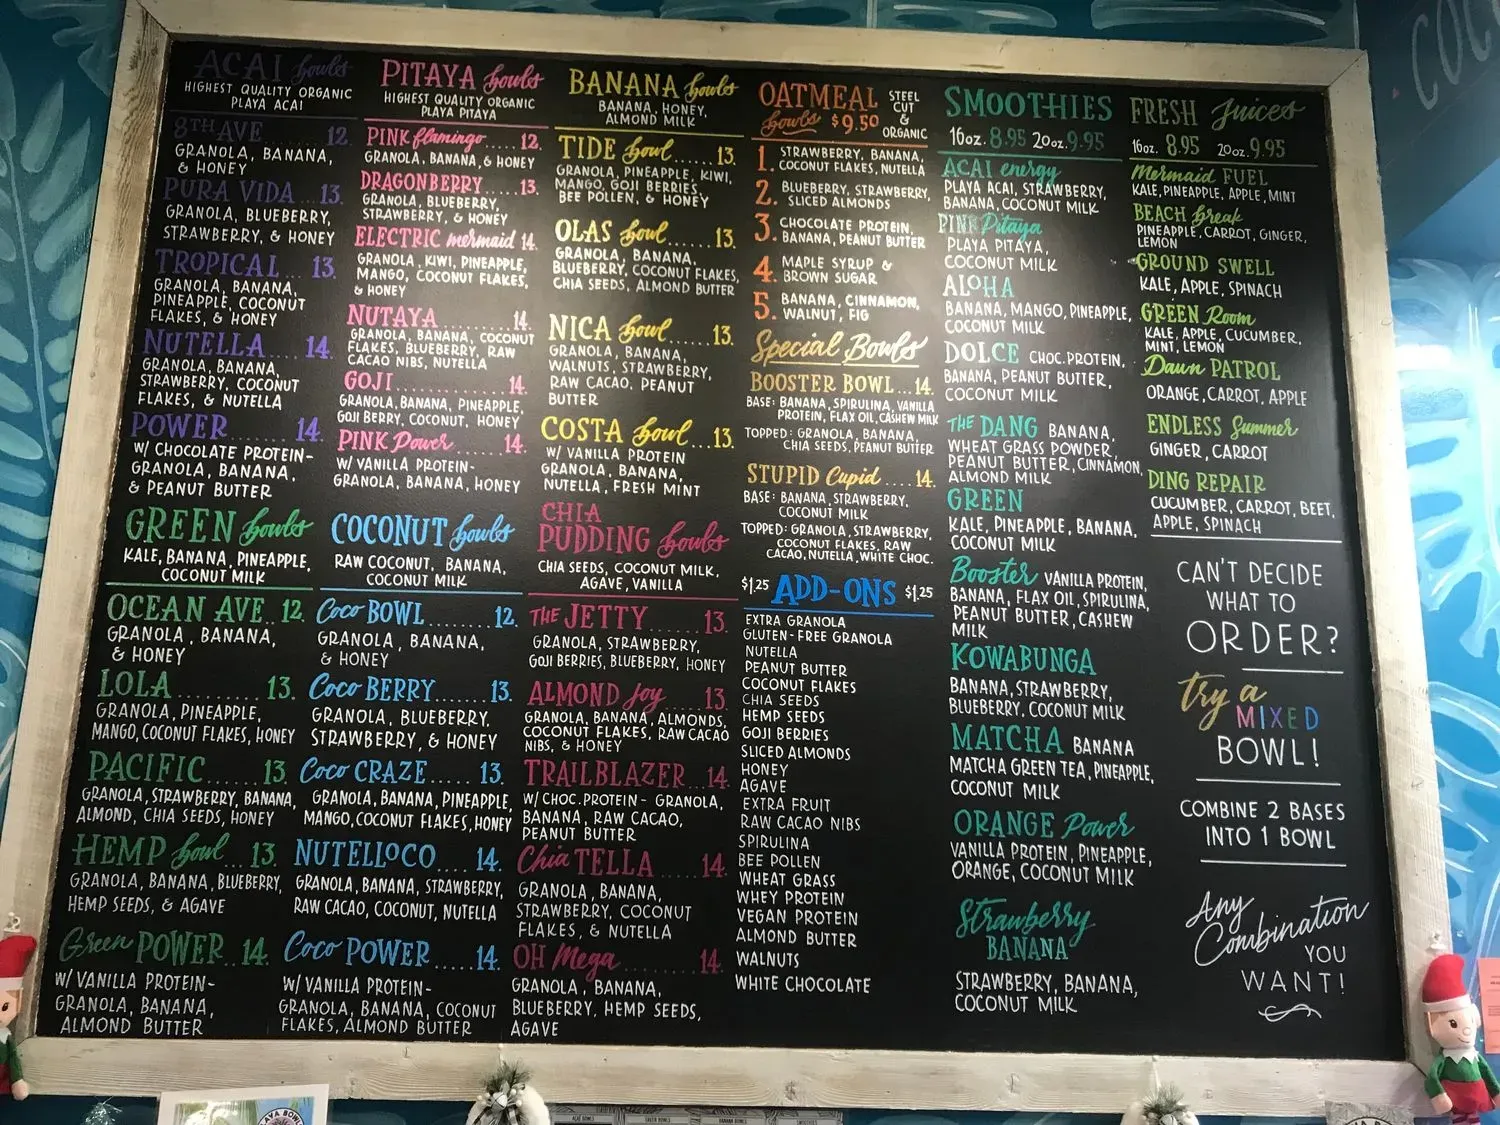 ACAI bowls
HIGHEST QUALITY ORGANIC
PLAYA ACAI
8TH AVE 12.
GRANOLA, BANANA,
& HONEY
PURA VIDA .. 13.
GRANOLA, BLUEBERRY,
STRAWBERRY, & HONEY
TROPICAL ... 13.
GRANOLA, BANANA,
PINEAPPLE, COCONUT
FLAKES, & HONEY
NUTELLA .... 14.
GRANOLA, BANANA,
STRAWBERRY, COCONUT
FLAKES, & NUTELLA
POWER ....... 14.
W/ CHOCOLATE PROTEIN-
GRANOLA, BANANA,
& PEANUT BUTTER
GREEN bowls
KALE, BANANA, PINEAPPLE,
COCONUT MILK
OCEAN AVE.. 12.
GRANOLA, BANANA,
& HONEY
LOLA .......... 13.
GRANOLA, PINEAPPLE,
MANGO, COCONUT FLAKES, HONEY
PACIFIC ...... 13.
GRANOLA, STRAWBERRY, BANANA,
ALMOND, CHIA SEEDS, HONEY
HEMP bowl .. 13.
GRANOLA, BANANA, BLUEBERRY,
HEMP SEEDS, & AGAVE
Green POWER.. 14.
W/ VANILLA PROTEIN-
GRANOLA, BANANA,
ALMOND BUTTER
PITAYA bowls
HIGHEST QUALITY ORGANIC
PLAYA PITAYA
PINK flamingo ..... 12.
GRANOLA, BANANA, & HONEY
DRAGONBERRY ..... 13.
GRANOLA, BLUEBERRY,
STRAWBERRY, & HONEY
ELECTRIC mermaid 14.
GRANOLA, KIWI, PINEAPPLE,
MANGO, COCONUT FLAKES,
& HONEY
NUTAYA .......... 14.
GRANOLA, BANANA, COCONUT
FLAKES, BLUEBERRY, RAW
CACAO NIBS, NUTELLA
GOJI ............... 14.
GRANOLA, BANANA, PINEAPPLE,
GOJI BERRY, COCONUT, HONEY
PINK Power ...... 14.
W/ VANILLA PROTEIN-
GRANOLA, BANANA, HONEY
COCONUT bowls
RAW COCONUT, BANANA,
COCONUT MILK
Coco BOWL ........ 12.
GRANOLA, BANANA,
& HONEY
Coco BERRY....... 13.
GRANOLA, BLUEBERRY,
STRAWBERRY, & HONEY
Coco CRAZE ..... 13.
GRANOLA, BANANA, PINEAPPLE,
MANGO, COCONUT FLAKES, HONEY
NUTELLOCO ..... 14.
GRANOLA, BANANA, STRAWBERRY,
RAW CACAO, COCONUT, NUTELLA
Coco POWER ..... 14.
W/ VANILLA PROTEIN-
GRANOLA, BANANA, COCONUT
FLAKES, ALMOND BUTTER
BANANA bowls
BANANA, HONEY,
ALMOND MILK
TIDE bowl ...... 13.
GRANOLA, PINEAPPLE, KIWI,
MANGO, GOJI BERRIES,
BEE POLLEN, & HONEY
OLAS bowl ....... 13.
GRANOLA, BANANA,
BLUEBERRY, COCONUT FLAKES,
CHIA SEEDS, ALMOND BUTTER
NICA bowl ...... 13.
GRANOLA, BANANA,
WALNUTS, STRAWBERRY,
RAW CACAO, PEANUT
BUTTER
COSTA bowl ... 13.
W/ VANILLA PROTEIN
GRANOLA, BANANA,
NUTELLA, FRESH MINT
CHIA
PUDDING bowls
CHIA SEEDS, COCONUT MILK,
AGAVE, VANILLA
THE JETTY ........ 13.
GRANOLA, STRAWBERRY,
GOJI BERRIES, BLUEBERRY, HONEY
ALMOND Joy ..... 13.
GRANOLA, BANANA, ALMONDS,
COCONUT FLAKES, RAW CACAO
NIBS, & HONEY
TRAILBLAZER .. 14.
W/ CHOC. PROTEIN- GRANOLA,
BANANA, RAW CACAO,
PEANUT BUTTER
Chia TELLA ...... 14.
GRANOLA, BANANA,
STRAWBERRY, COCONUT
FLAKES, & NUTELLA
OH Mega ......... 14.
GRANOLA, BANANA,
BLUEBERRY, HEMP SEEDS,
AGAVE
OATMEAL
bowls $9.50
STEEL
CUT
&
ORGANIC
1. STRAWBERRY, BANANA,
COCONUT FLAKES, NUTELLA
2. BLUEBERRY, STRAWBERRY,
SLICED ALMONDS
3. CHOCOLATE PROTEIN,
BANANA, PEANUT BUTTER
4. MAPLE SYRUP &
BROWN SUGAR
5. BANANA, CINNAMON,
WALNUT, FIG
Special Bowls
BOOSTER BOWL ... 14.
BASE: BANANA, SPIRULINA, VANILLA
PROTEIN, FLAX OIL, CASHEW MILK
TOPPED: GRANOLA, BANANA,
CHIA SEEDS, PEANUT BUTTER
STUPID Cupid .... 14.
BASE: BANANA, STRAWBERRY,
COCONUT MILK
TOPPED: GRANOLA, STRAWBERRY,
COCONUT FLAKES, RAW
CACAO, NUTELLA, WHITE CHOC.
$1.25 ADD-ONS $1.25
EXTRA GRANOLA
GLUTEN-FREE GRANOLA
NUTELLA
PEANUT BUTTER
COCONUT FLAKES
CHIA SEEDS
HEMP SEEDS
GOJI BERRIES
SLICED ALMONDS
HONEY
AGAVE
EXTRA FRUIT
RAW CACAO NIBS
SPIRULINA
BEE POLLEN
WHEAT GRASS
WHEY PROTEIN
VEGAN PROTEIN
ALMOND BUTTER
WALNUTS
WHITE CHOCOLATE
SMOOTHIES
16oz. 8.95 20oz. 9.95
ACAI energy
PLAYA ACAI, STRAWBERRY,
BANANA, COCONUT MILK
PINK Pitaya
PLAYA PITAYA,
COCONUT MILK
ALOHA
BANANA, MANGO, PINEAPPLE,
COCONUT MILK
DOLCE CHOC. PROTEIN,
BANANA, PEANUT BUTTER,
COCONUT MILK
THE DANG BANANA,
WHEAT GRASS POWDER,
PEANUT BUTTER, CINNAMON,
ALMOND MILK
GREEN
KALE, PINEAPPLE, BANANA,
COCONUT MILK
Booster VANILLA PROTEIN,
BANANA, FLAX OIL, SPIRULINA,
PEANUT BUTTER, CASHEW
MILK
KOWABUNGA
BANANA, STRAWBERRY,
BLUEBERRY, COCONUT MILK
MATCHA BANANA
MATCHA GREEN TEA, PINEAPPLE,
COCONUT MILK
ORANGE Power
VANILLA PROTEIN, PINEAPPLE,
ORANGE, COCONUT MILK
Strawberry
BANANA
STRAWBERRY, BANANA,
COCONUT MILK
FRESH Juices
16oz. 8.95 20oz. 9.95
Mermaid FUEL
KALE, PINEAPPLE, APPLE, MINT
BEACH Break
PINEAPPLE, CARROT, GINGER,
LEMON
GROUND SWELL
KALE, APPLE, SPINACH
GREEN Room
KALE, APPLE, CUCUMBER,
MINT, LEMON
Dawn PATROL
ORANGE, CARROT, APPLE
ENDLESS Summer
GINGER, CARROT
DING REPAIR
CUCUMBER, CARROT, BEET,
APPLE, SPINACH
CAN'T DECIDE
WHAT TO
ORDER?
try a
MIXED
BOWL!
COMBINE 2 BASES
INTO 1 BOWL
Any
Combination
YOU
WANT!